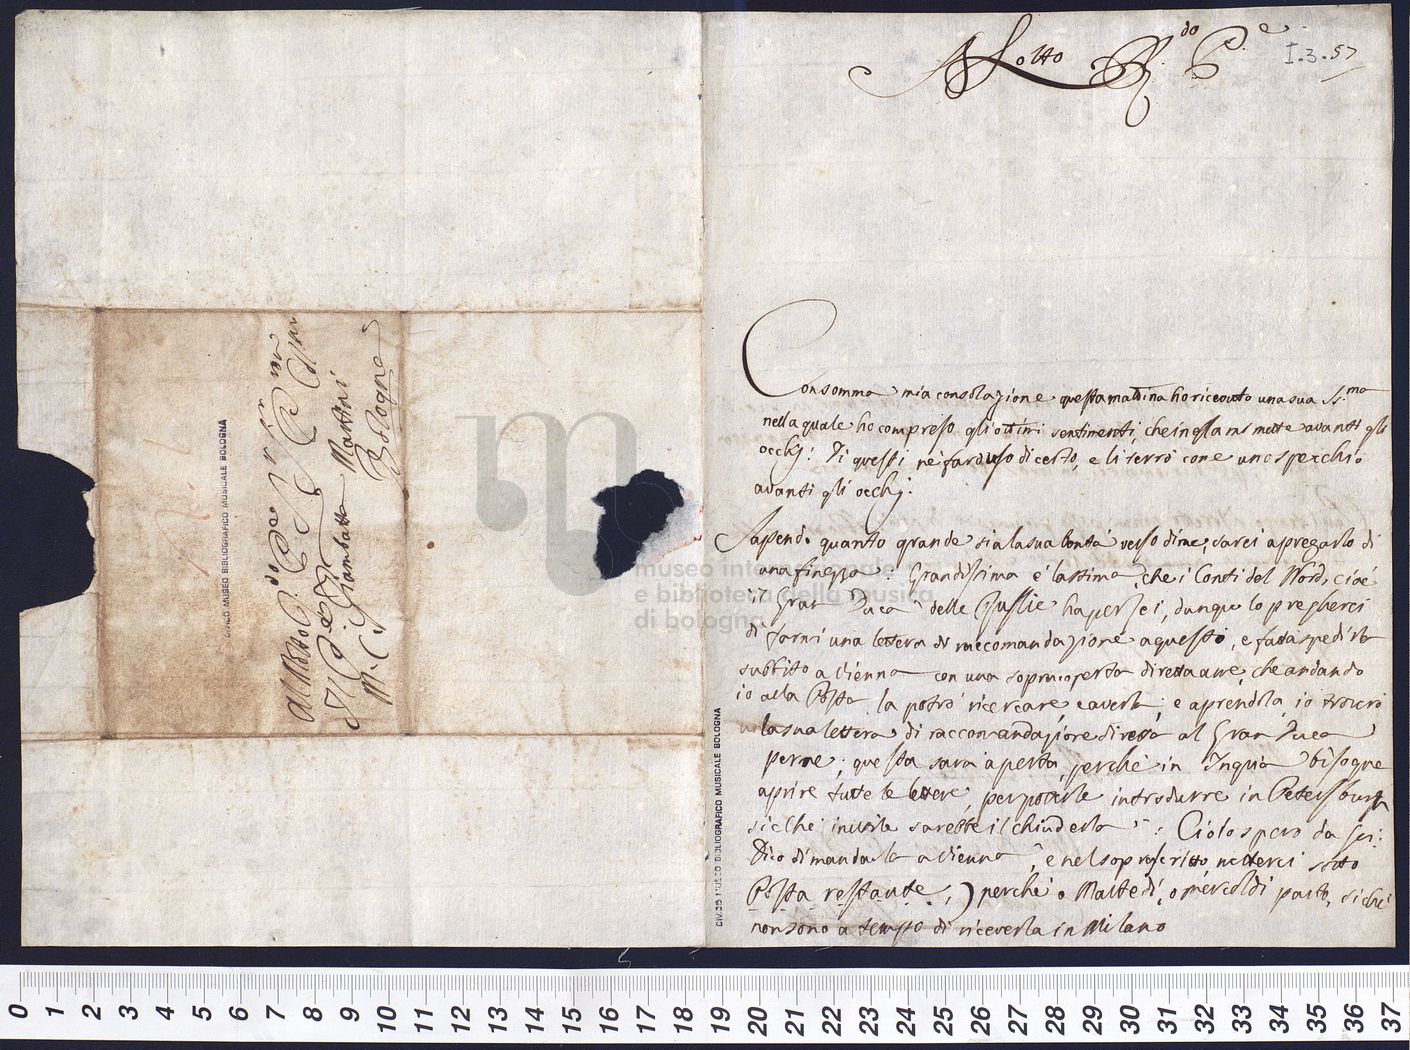 Molto R.do P.e
I.3.57
Con somma mia consolazione questa mattina ho ricevuto una sua
nella quale ho compreso gli ottimi sentimenti, che in essa mi mette avanti gli
occhj: Di questi ne farò uso di certo, e li terrò come uno specchio
avanti gli occhj.
Sapendo quanto grande sia la sua bontà verso di me, sarei a pregarlo di
una finezza: Grandissima è la stima, che i Conti del Nord, cioè
il Gran Duca delle Russie ha per lei, dunque lo pregherei
di farmi una lettera di raccomandazione a questo, e fatta spedirla
subbito a Vienna con una sopracoperta diretta a me, che andando
io alla Posta la potrò ricercare e averla e aprendola io troverò
la sua lettera di raccomandazione diretta al Gran Duca
per me; questa sarà aperta, perchè in bisogna
aprire tutte le lettere, per poterle introdurre in Petersburg
sicchè inutile sarebbe il chiuderla: Ciò lo spero da Lei:
Dico di mandarla a Vienna, e nel soprascritto metterci sotto
Posta restante, perchè o Martedì, o mercoldì parto, sichè
non sono a tempo di riceverla in Milano
Al Molto
Il P.
M. Giambatta Martini
Bologna
CIVICO MUSEO BIBLIOGRAFICO MUSICALE BOLOGNA
CIVICO MUSEO BIBLIOGRAFICO MUSICALE BOLOGNA
museo internazionale
e biblioteca della musica
di bologna
0 1 2 3 4 5 6 7 8 9 10 11 12 13 14 15 16 17 18 19 20 21 22 23 24 25 26 27 28 29 30 31 32 33 34 35 36 37